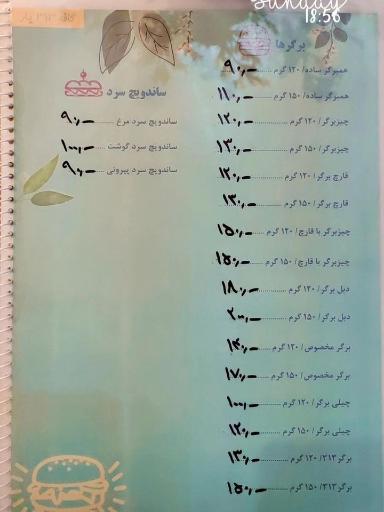 Sunday
18:56
برگرها
همبرگر ساده/ ۱۲۰ گرم ۹۰,-
همبرگر ساده/ ۱۵۰ گرم ۱۱۰,-
چیزبرگر/ ۱۲۰ گرم ۱۲۰,-
چیزبرگر/ ۱۵۰ گرم ۱۳۰,-
قارچ برگر/ ۱۲۰ گرم ۱۲۰,-
قارچ برگر/ ۱۵۰ گرم ۱۳۰,-
چیزبرگر با قارچ/ ۱۲۰ گرم ۱۵۰,-
چیزبرگر با قارچ/ ۱۵۰ گرم ۱۵۰,-
دبل برگر/ ۱۲۰ گرم ۱۸۰,-
دبل برگر/ ۱۵۰ گرم ۲۰۰,-
برگر مخصوص/ ۱۲۰ گرم
برگر مخصوص/ ۱۵۰ گرم ۱۷۰,-
چیلی برگر/ ۱۲۰ گرم ۱۰۰,-
چیلی برگر/ ۱۵۰ گرم ۱۲۰,-
برگر ۳۱۳/ ۱۲۰ گرم ۱۳۰,-
برگر ۳۱۳/ ۱۵۰ گرم ۱۵۰,-
ساندویچ سرد
ساندویچ سرد مرغ ۹۰,-
ساندویچ سرد گوشت ۱۰۰,-
ساندویچ سرد پپرونی ۹۰,-